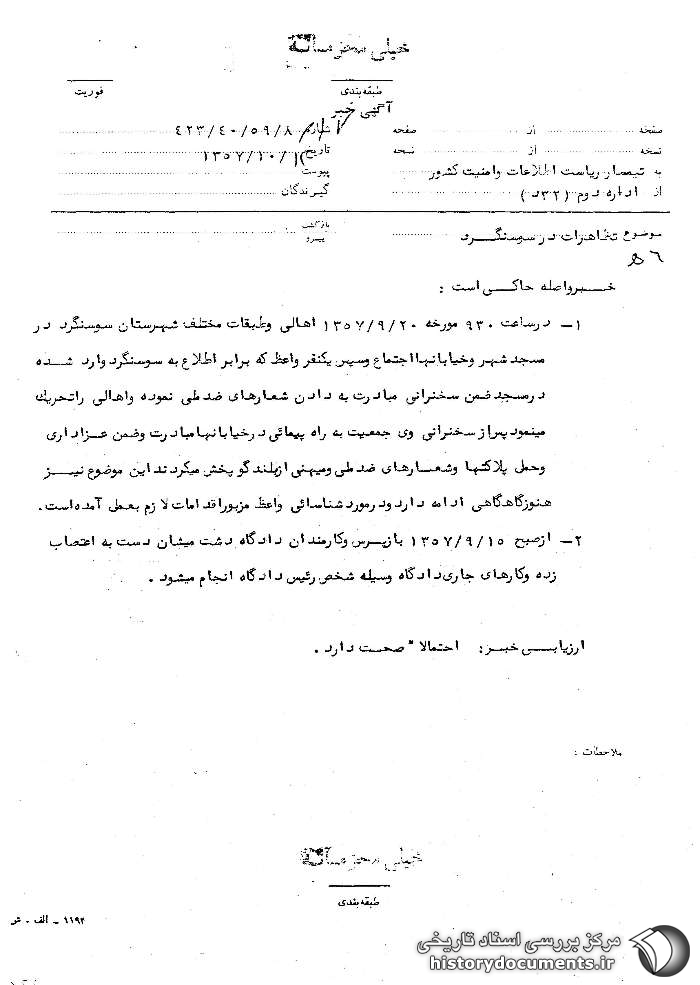 خیلی محرمانه
طبقه‌بندی
فوریت
آگهی خبر
صفحه از صفحه شماره ۴۲۳/۴۰/۵۹/۸
نسخه از نسخه تاریخ ۱۳۵۷/۱۰/
به تیمسار ریاست اطلاعات وامنیت کشور پیوست
از اداره دوم (۳۲د) گیرندگان
موضوع تظاهرات در سوسنگرد بازگشت پیرو
خبرواصله حاکی است :
۱- درساعت ۹۳۰ مورخه ۱۳۵۷/۹/۲۰ اهالی وطبقات مختلف شهرستان سوسنگرد در
مسجد شهر وخیابانهااجتماع وسپس یکنفر واعظ که برابر اطلاع به سوسنگرد وارد شده
درمسجد ضمن سخنرانی مبادرت به دادن شعارهای ضدملی نموده واهالی راتحریك
مینمود پس از سخنرانی وی جمعیت به راه پیمائی درخیابانهامبادرت وضمن عزاداری
وحمل پلاکتها وشعارهای ضدملی ومیهنی ازبلندگو پخش میکردند این موضوع نیز
هنوزگاهگاهی ادامه دارد ودرمورد شناسائی واعظ مزبوراقدامات لازم بعمل آمده‌است.
۲- ازصبح ۱۳۵۷/۹/۱۵ بازپرس وکارمندان دادگاه دشت میشان دست به اعتصاب
زده وکارهای جاری‌دادگاه وسیله شخص رئیس دادگاه انجام میشود .
ارزیابی خبر: احتمالا" صحت دارد .
ملاحظات :
خیلی محرمانه
طبقه‌بندی
۱۱۹۲ - الف - ش
مرکز بررسی اسناد تاریخی
historydocuments.ir